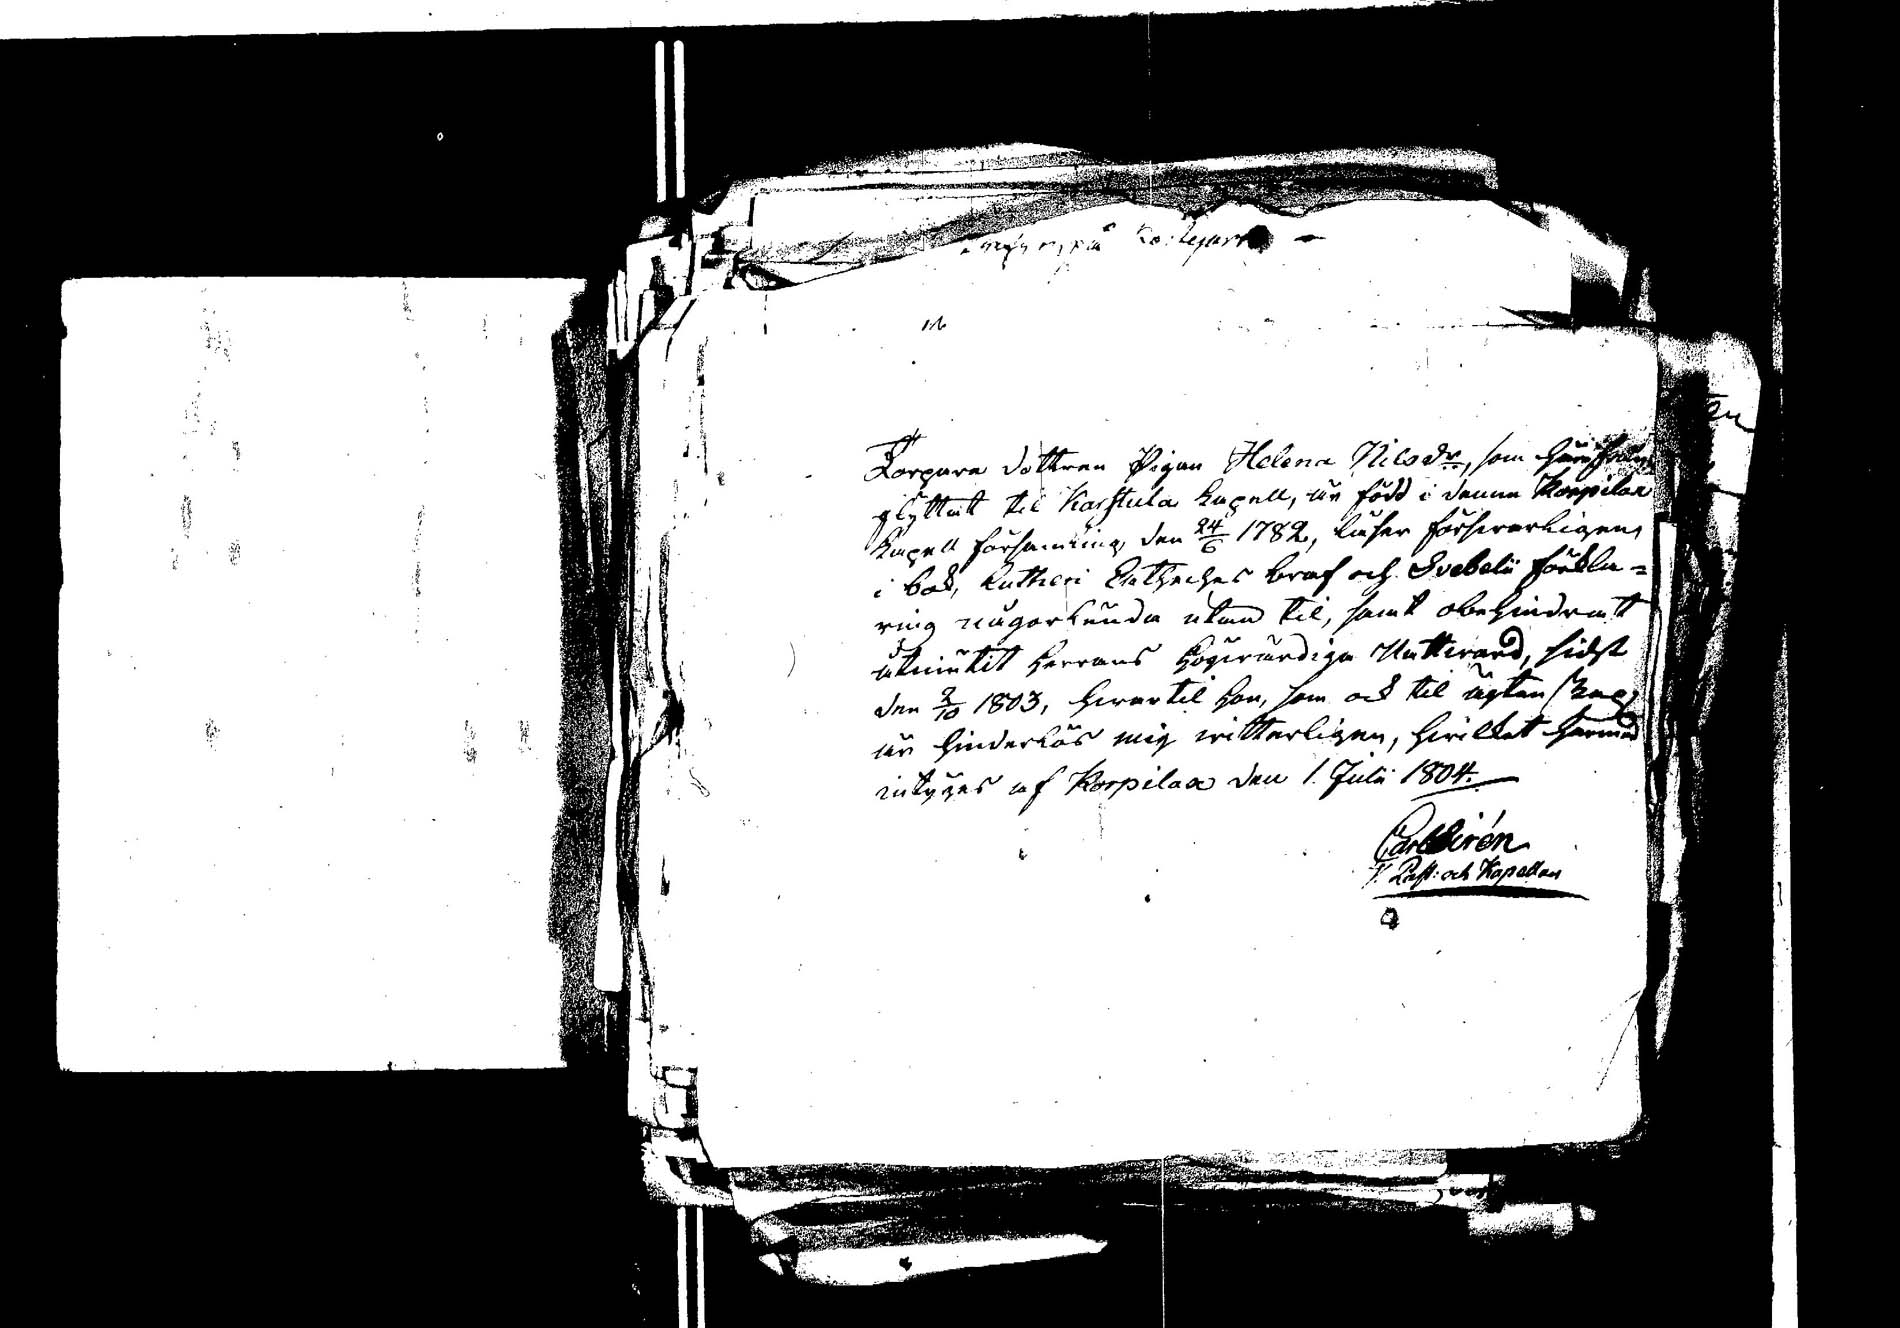 på
Torpare dottren Pigan Helena Nilsdr, som härifrån
flyttat til Karstula Capell, är född i denna Korpilax
Capell församling den 24/6 1782, läser försvarligen
i bok, Lutheri Catheches braf och Svebelii förkla=
ring någorlunda utan til, samt obehindratt
utniutit Herrans Högvärdiga Nattvard, sidst
den 2/10 1803, hvartil hon, som ock til ägtenskap,
är hinderlös mig vitterligen, hvilket härmed
intyges af Korpilax den 1. Julii 1804.
Carl Sirén
V. Past: och Kapellan